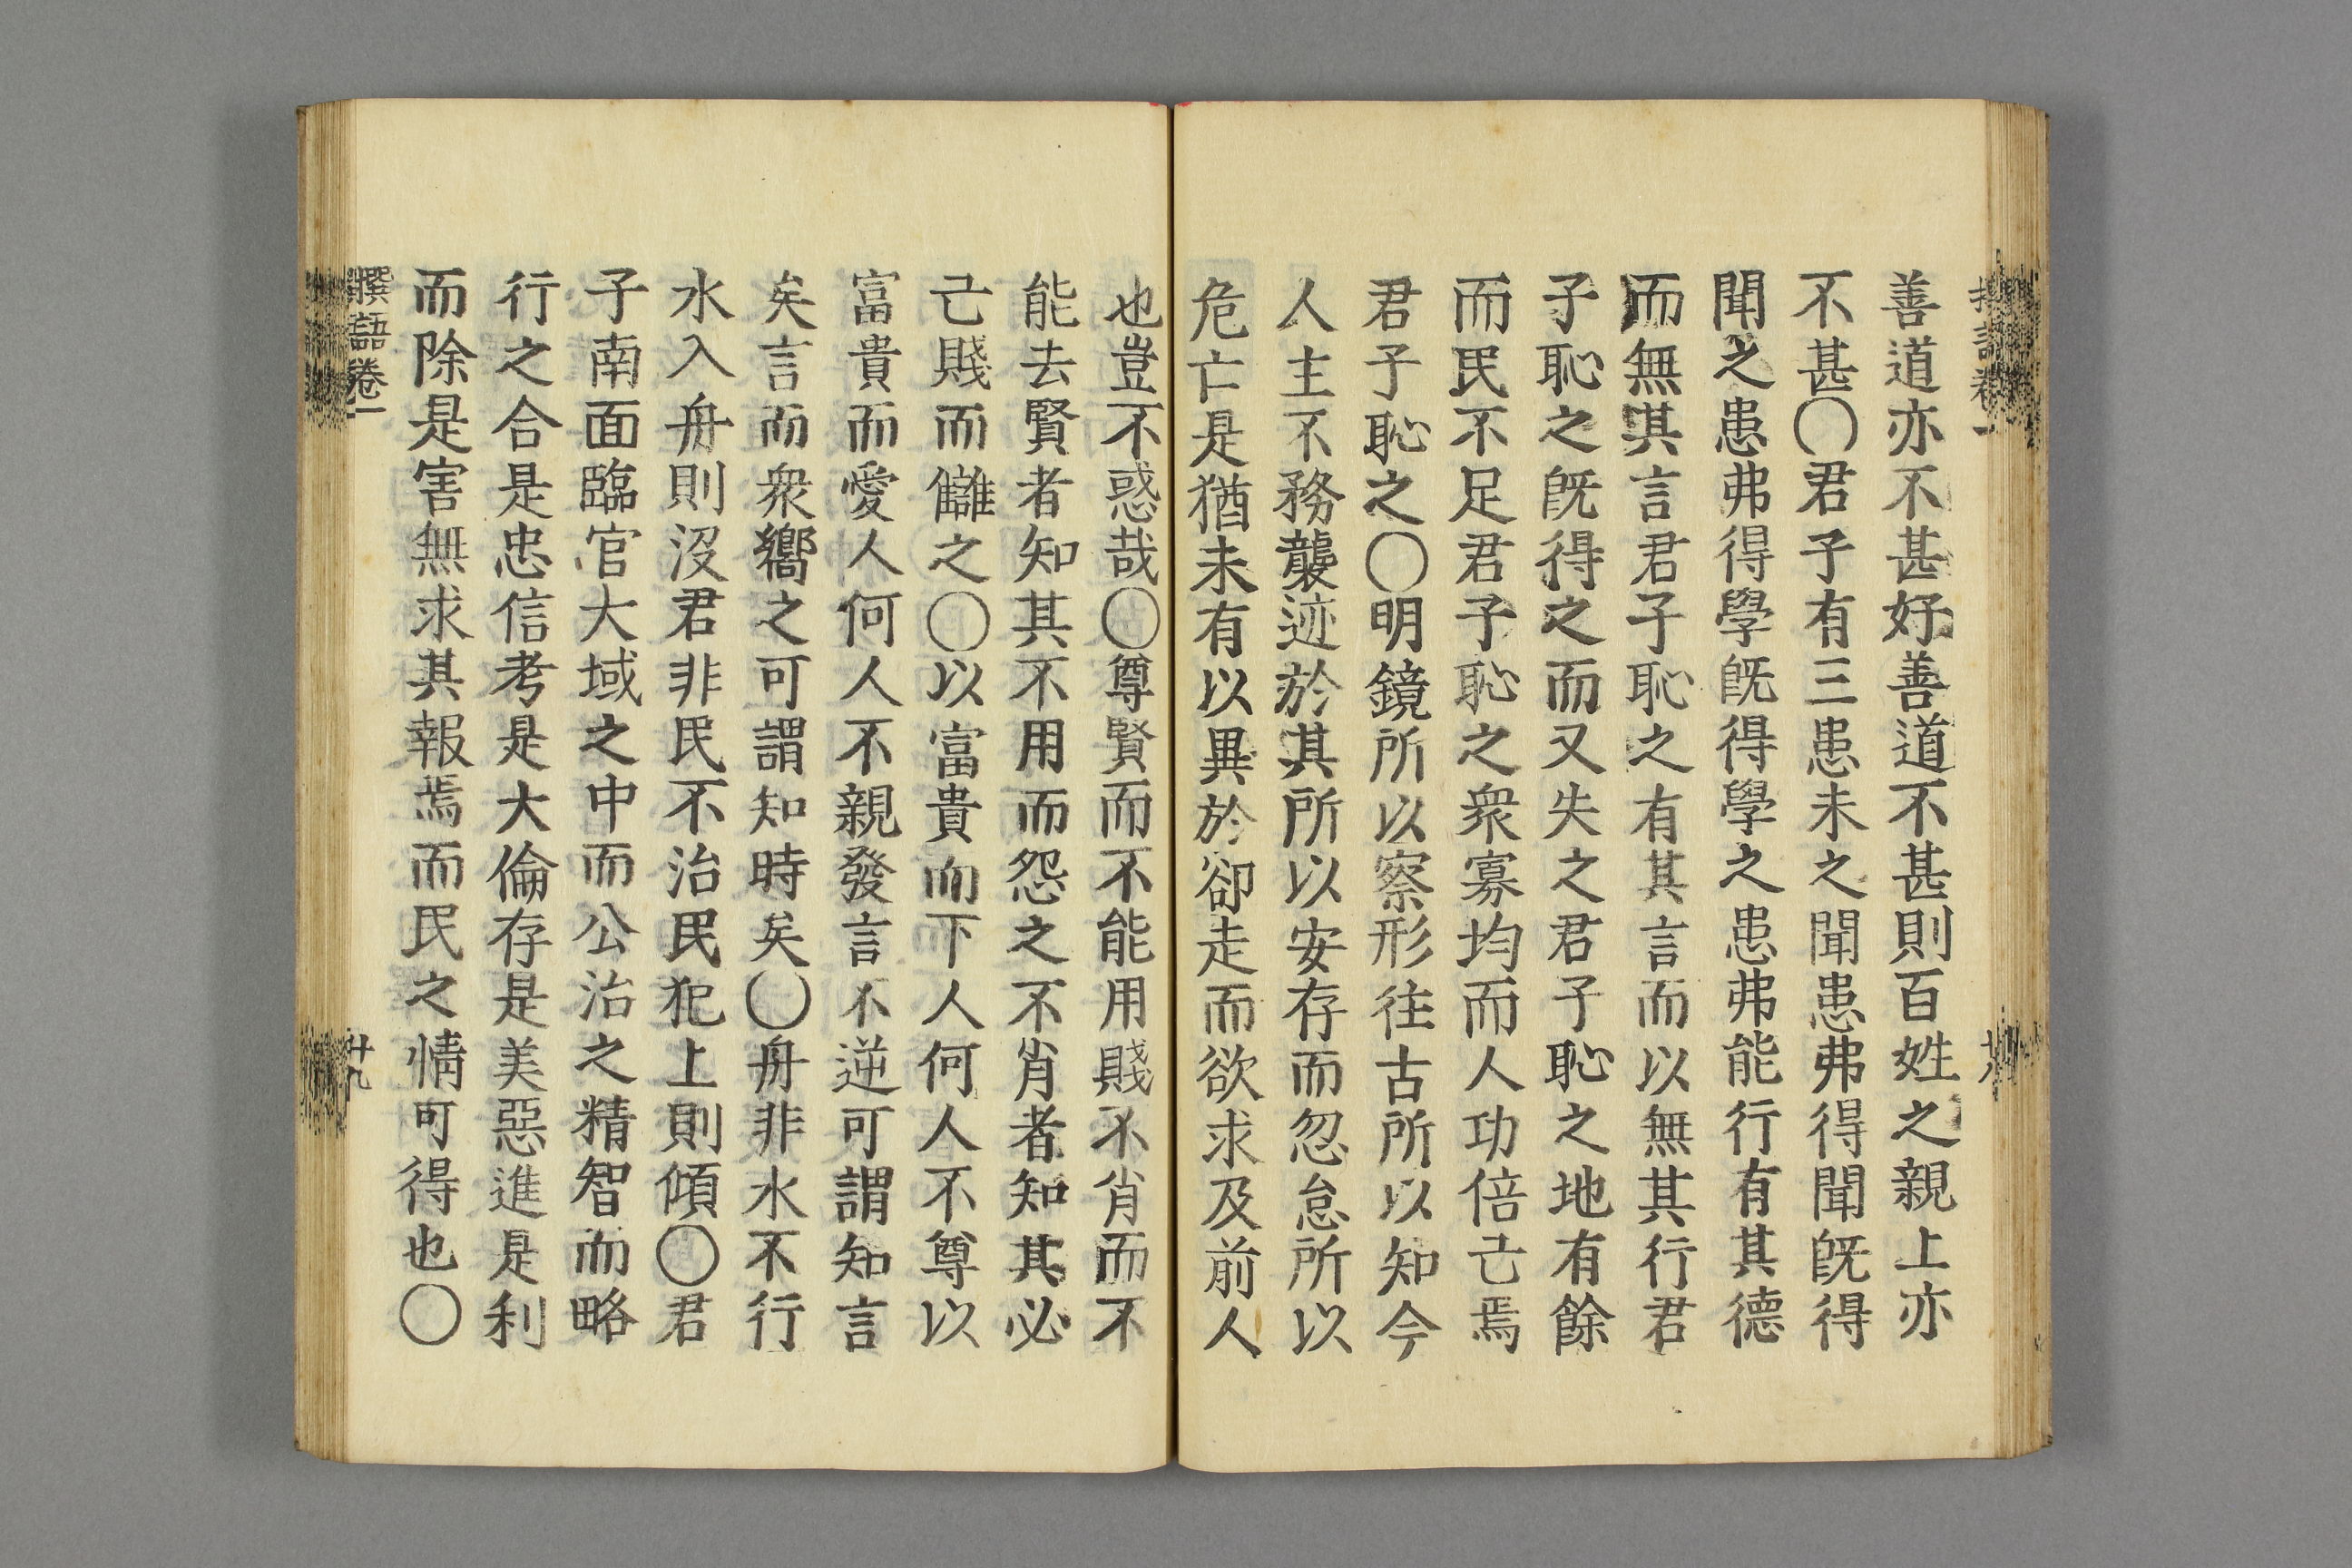 善道亦不甚好善道不甚則百姓之親上亦
不甚〇君子有三患未之聞患弗得聞旣得
聞之患弗得學旣得學之患弗能行有其德
而無其言君子恥之有其言而以無其行君
子恥之旣得之而又失之君子恥之地有餘
而民不足君子恥之衆寡均而人功倍己焉
君子恥之〇明鏡所以察形往古所以知今
人主不務襲迹於其所以安存而忽怠所以
危亡是猶未有以異於卻走而欲求及前人
也豈不惑哉〇尊賢而不能用賤不肖而不
能去賢者知其不用而怨之不肖者知其必
己賤而讎之〇以富貴而下人何人不尊以
富貴而愛人何人不親發言不逆可謂知言
矣言而衆嚮之可謂知時矣〇舟非水不行
水入舟則沒君非民不治民犯上則傾〇君
子南面臨官大域之中而公治之精智而略
行之合是忠信考是大倫存是美惡進是利
而除是害無求其報焉而民之情可得也〇
語卷一
廿九